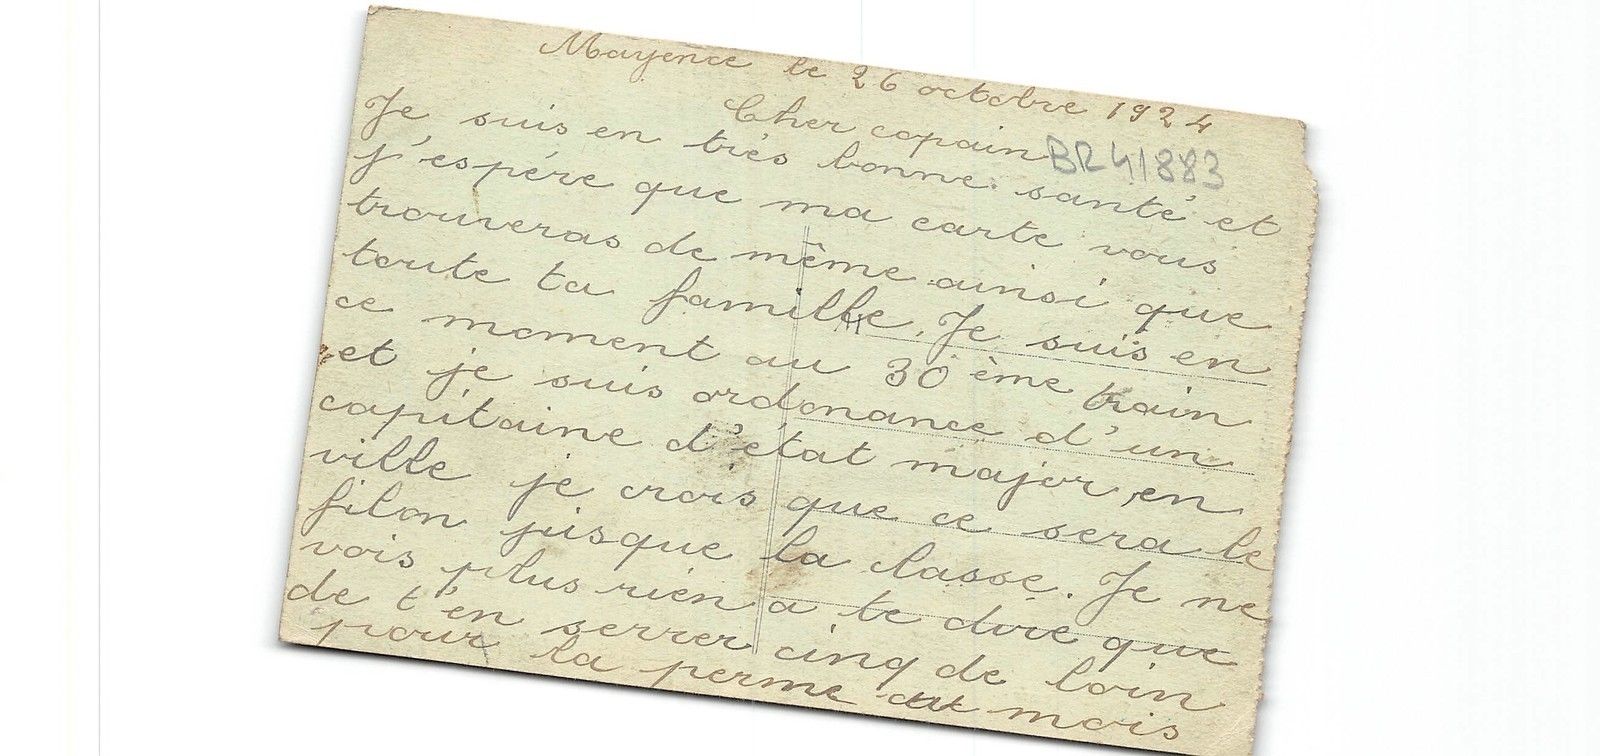 Mayence le 26 octobre 1924
Cher copain
BR41883
Je suis en très bonne santé et
j'espére que ma carte vous
trouveras de même ainsi que
toute ta famille. Je suis en
ce moment au 30ème train
et je suis ordonance d'un
capitaine d'état major en
ville je crois que ce sera le
filon jusque la classe. Je ne
vois plus rien a te dire que
de t'en serrer cinq de loin
pour la perme au mois